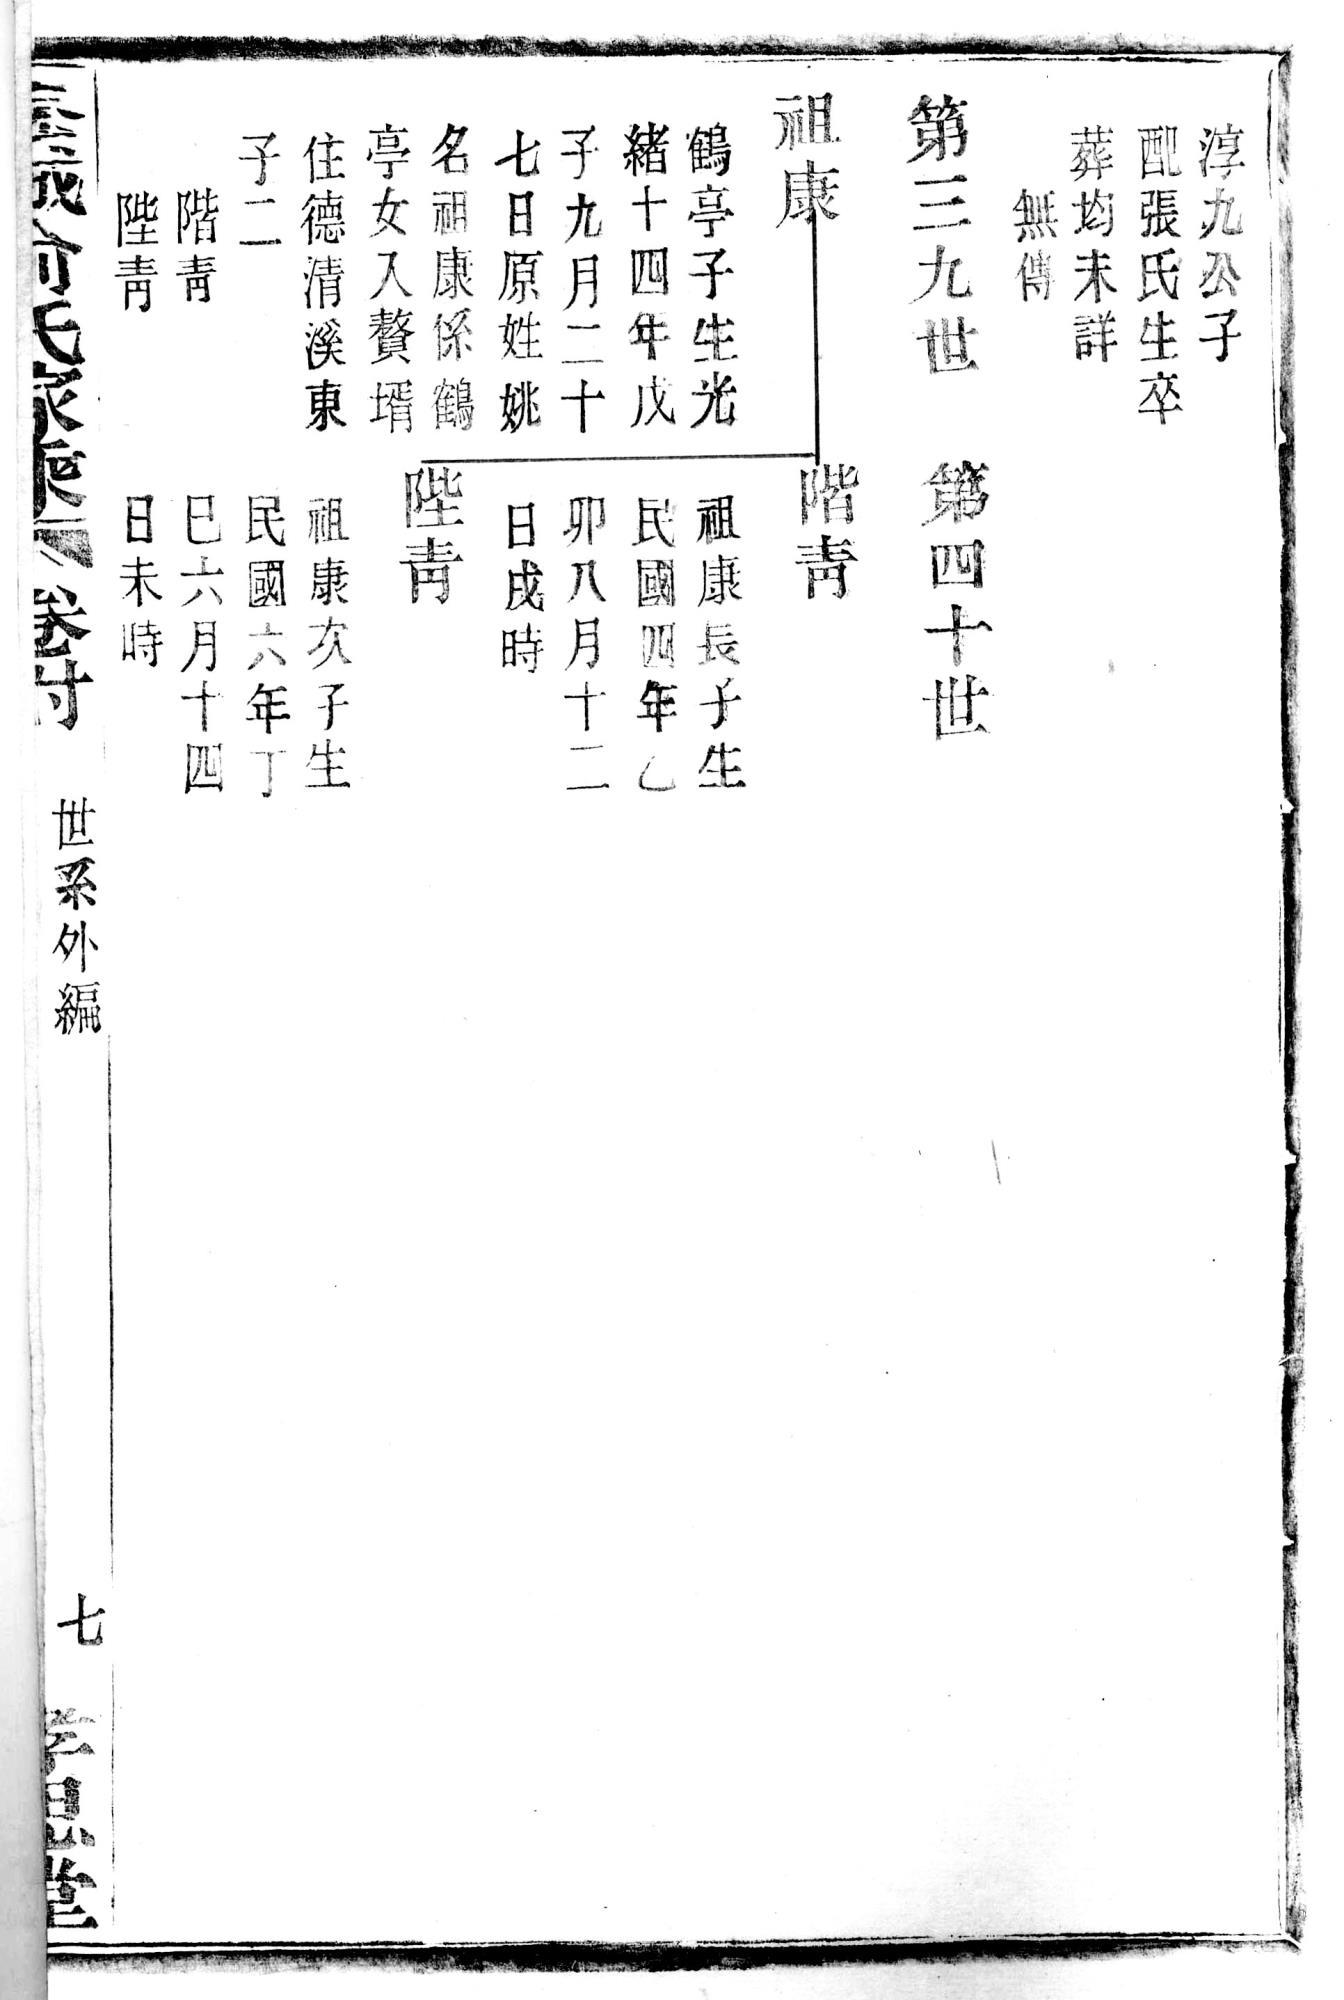 淳九公子
配張氏生卒
葬均未詳
無傳
第三九世
祖康
鶴亭子生光
緒十四年戊
子九月二十
七日原姓姚
名祖康係鶴
亭女入贅壻
住德清溪東
子二
階青
陛青
第四十世
階青
祖康長子生
民國四年乙
卯八月十二
日戌時
陛青
祖康次子生
民國六年丁
巳六月十四
日未時
俞氏家乘 卷付
世系外編
七
孝思堂